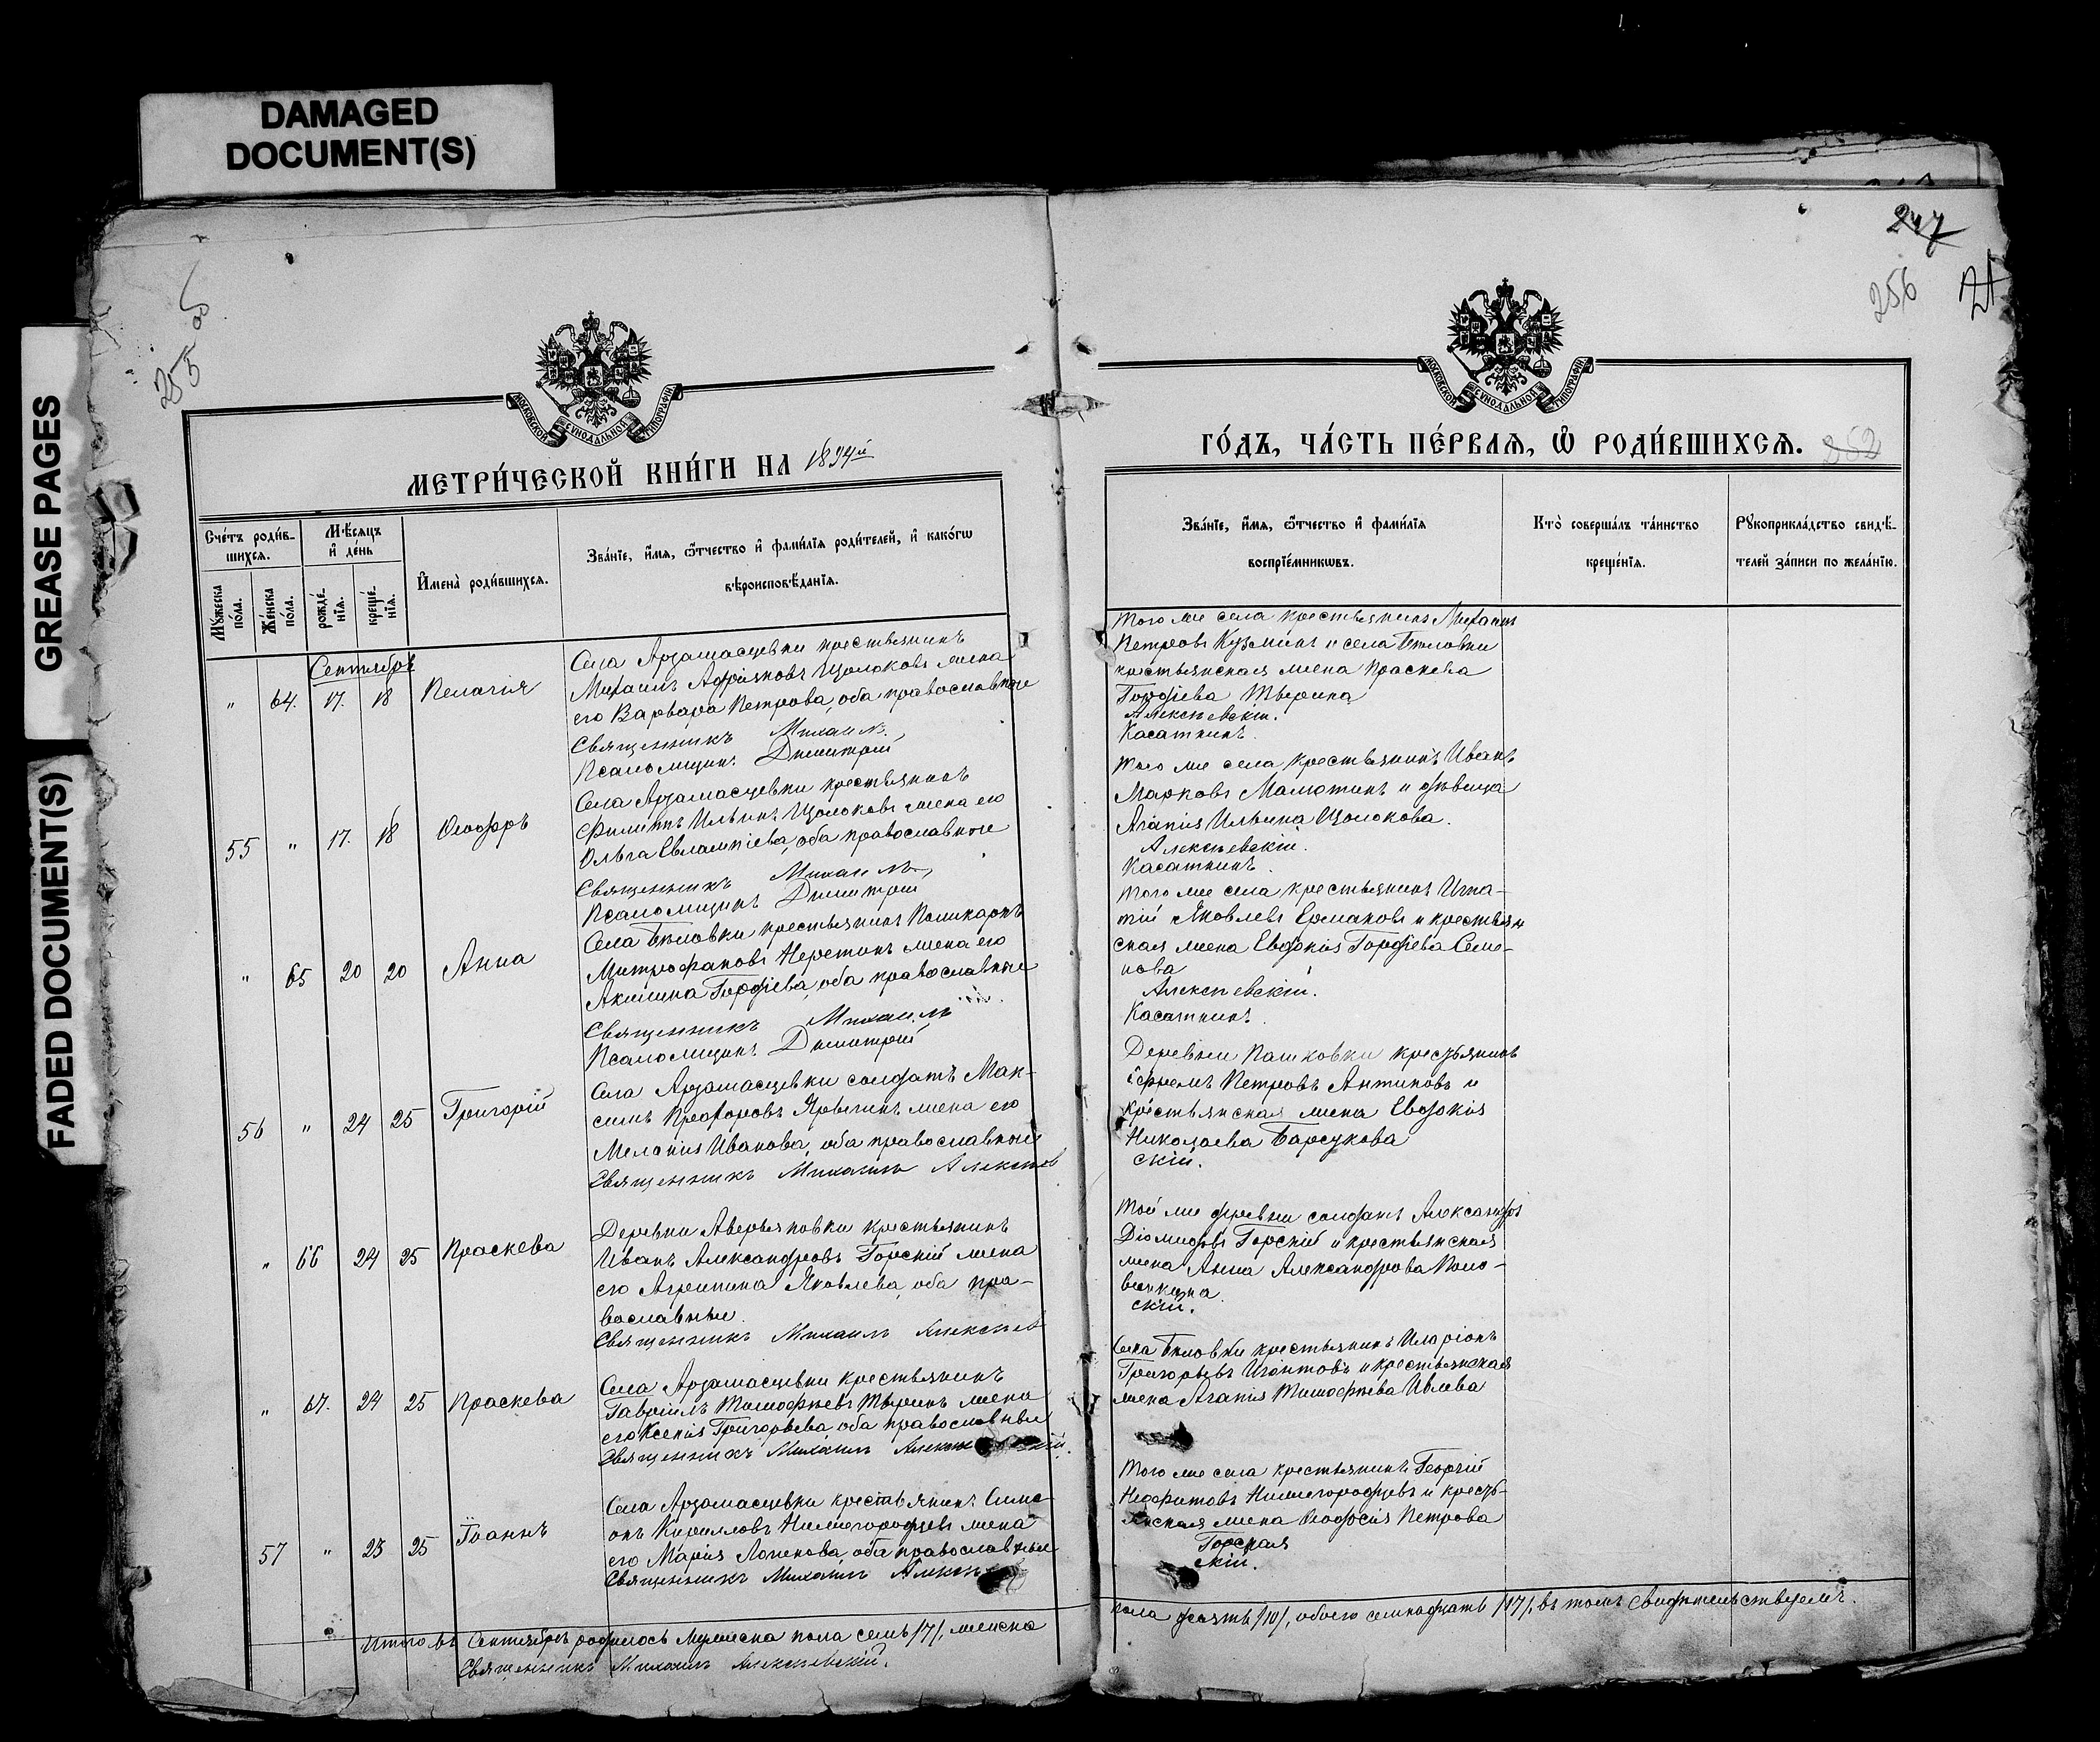 DAMAGED
DOCUMENT(S)
GREASE PAGES
FADED DOCUMENT(S)
255 об
МОСКОВСКОЙ СѴНОДАЛЬНОЙ ТИПОГРАФІИ
МЕТРИ́ЧЕСКОЙ КНИ́ГИ НА 1894й
Сче́тъ роди́в-
шихсѧ.
Мѣ́сѧцъ
и҆ де́нь
Мꙋ́жеска
по́ла.
Же́нска
по́ла.
рожде́-
нїѧ.
креще́-
нїѧ.
И҆мена̀ роди́вшихсѧ.
Зва́нїе, и҆́мѧ, ѻ҆́тчество и҆ фамѝлїѧ роди́телей, и҆ како́гѡ
вѣроисповѣ́данїѧ.
Сентябрь
" 64. 17. 18 Пелагія
Села Арзамасцевки крестьянинъ
Михаилъ Адріяновъ Щолоковъ жена
его Варвара Петрова, оба православные
Священникъ Михаилъ
Псаломщикъ Димитрій
55 " 17. 18 Ѳеодоръ
Села Арзамасцевки крестьянинъ
Филиппъ Ильинъ Щолоковъ жена его
Ольга Евлампіева, оба православные
Священникъ Михаилъ
Псаломщикъ Димитрій
" 65 20 20 Анна
Села Бѣловки крестьянинъ Поликарпъ
Митрофановъ Неретинъ жена его
Акилина Гордіева, оба православные
Священникъ Михаилъ
Псаломщикъ Димитрій
56 " 24 25 Григорій
Села Арзамасцевки солдатъ Мак-
симъ жена его
Меланія Иванова, оба православные
Священникъ Михаилъ Алексѣев
" 66 24 25 Праскева
Деревни Аверьяновки крестьянинъ
Иванъ Александровъ Горскій жена
его Агриппина Яковлева, оба пра-
вославные
Священникъ Михаилъ Алексѣев
" 67. 24 25 Праскева
Села Арзамасцевки крестьянинъ
Гавріилъ Тимофѣевъ Тверинъ жена
его Ксенія Григорьева, оба православные
Священникъ Михаилъ
57 " 23 25 Іоаннъ
Села Арзамасцевки крестьянинъ Симе-
онъ Кирилловъ Нижегородцевъ жена
его Марія Логинова, оба православные
Священникъ Михаилъ
Итого въ Сентябрѣ родилось мужеска пола семь /7/, женска
Священникъ Михаилъ Алексѣевскій.
247
256
МОСКОВСКОЙ СѴНОДАЛЬНОЙ ТИПОГРАФІИ
ГО́ДЪ, ЧА́СТЬ ПЕ́РВАѦ, Ѽ РОДИ́ВШИХСѦ. 252
Зва́нїе, и҆́мѧ, ѻ҆́тчество и҆ фамѝлїѧ
воспрїе́мникѡвъ.
Кто̀ соверша́лъ та́инство
креще́нїѧ.
Рꙋкоприкла́дство свидѣ́-
телей за́писи по жела́нїю.
Того же села крестьянинъ Михаилъ
Петровъ Кузминъ и села Бѣловки
крестьянская жена Праскева
Гордіева Тверина
Алексѣевскій.
Касаткинъ.
Того же села крестьянинъ Иванъ
Марковъ Малютинъ и дѣвица
Агапія Ильина Щолокова.
Алексѣевскій.
Касаткинъ.
Того же села крестьянинъ Игна-
тій Яковлевъ Ермаковъ и крестьян
ская жена Евдокія Гордіева Семе-
нова
Алексѣевскій.
Касаткинъ.
Деревни Пашковки крестьянинъ
Ефремъ Петровъ Антиповъ и
крестьянская жена Евдокія
Николаева Барсукова
скій.
Той же деревни солдатъ Александръ
Діомидовъ Горскій и крестьянская
жена Анна Александрова
скій.
Села Бѣловки крестьянинъ Иларіонъ
Григорьевъ и крестьянская
жена Агапія Тимофѣева Ивлева
Того же села крестьянинъ Георгій
Неофитовъ Нижегородцевъ и кресть-
янская жена Ѳеодосія Петрова
Горская
скій.
пола десять /10/, обоего семнадцать /17/, въ томъ свидѣтельствуемъ.